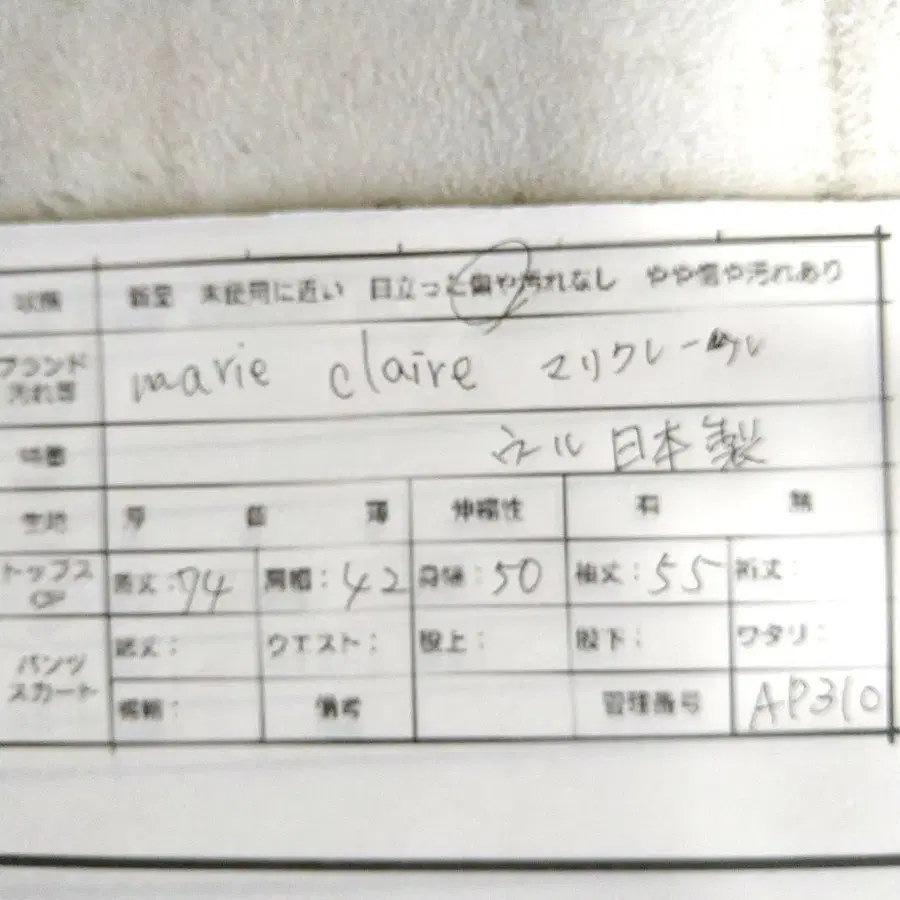 状態 新品 未使用に近い 目立った傷や汚れなし やや傷や汚れあり
ブランド 汚れ等 marie claire マリクレール
特徴 ウール 日本製
生地 厚 普 薄 伸縮性 有 無
トップス OP 着丈:74 肩幅:42 身幅:50 袖丈:55 裄丈:
パンツ スカート 総丈: ウエスト: 股上: 股下: ワタリ:
裾幅: 備考 管理番号 AP310